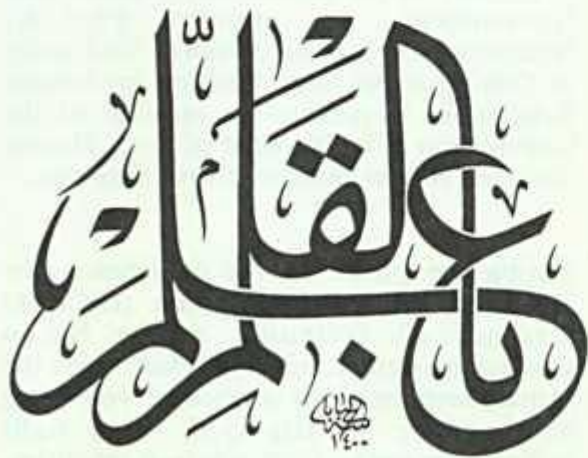 علم بالقلم
١٤٠٠